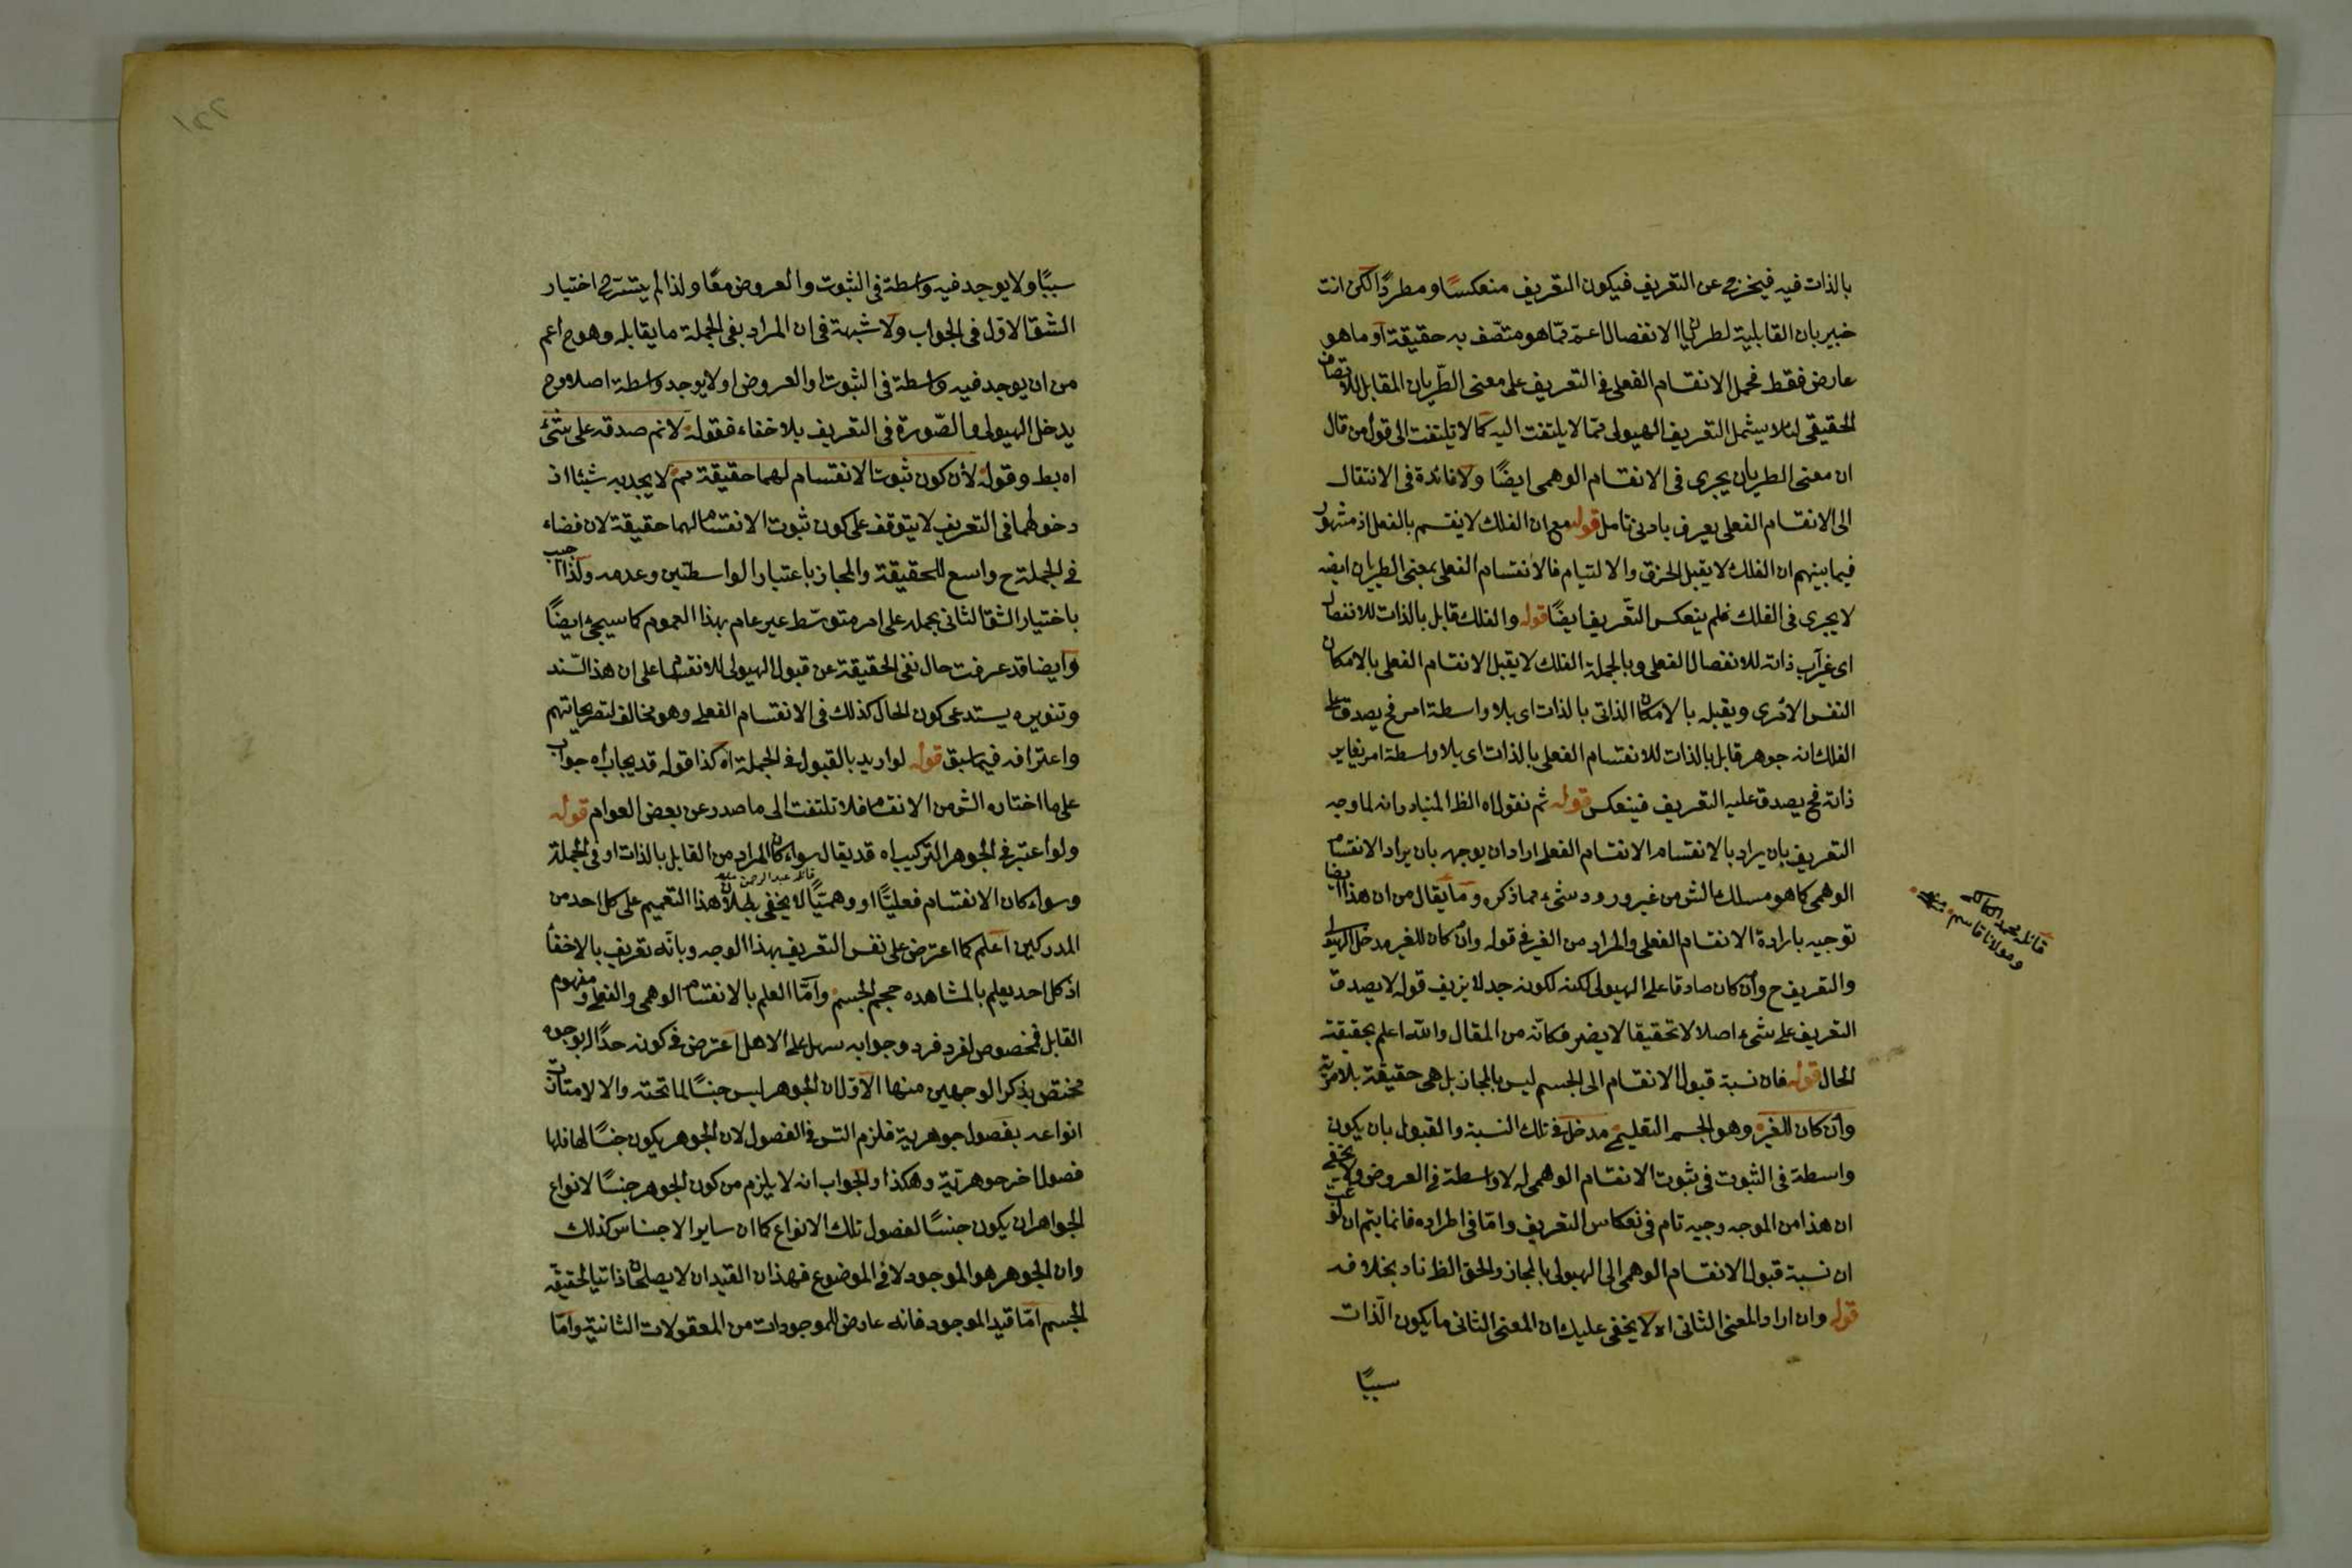 بالذات فيه فيخرج عن التعريف فيكون التعريف منعكسًا ومطردًا لكن انت
خبير بان القابلية لطريان الانفصال اعم مما هو متصف به حقيقة او ما هو
عارض فقط فحمل الانقسام الفعلى فى التعريف على معنى الطريان المقابل للاتصاف
الحقيقى لئلا يشمل التعريف الهيولى مما لا يلتفت اليه كما لا تلتفت الى قول من قال
ان معنى الطريان يجرى فى الانقسام الوهمى ايضًا ولا فائدة فى الانتقال
الى الانقسام الفعلى يعرف بادنى تامل قوله مع ان الفلك لا ينقسم بالفعل اذ مشهور
فيما بينهم ان الفلك لا يقبل الخرق والالتيام فالانقسام الفعلى بمعنى الطريان ايضه
لا يجرى فى الفلك فلم ينعكس التعريف ايضًا قوله والفلك قابل بالذات للانفصال
ذاته للانفصال الفعلى وبالجملة الفلك لا يقبل الانقسام الفعلى بالامكان
النفس الامرى ويقبله بالامكان الذاتى بالذات اى بلا واسطة امر فح يصدق على
الفلك انه جوهر قابل بالذات للانقسام الفعلى بالذات اى بلا واسطة امر يغاير
ذاته فح يصدق عليه التعريف فينعكس قوله ثم نقول اه الظ المتبادر انه لما وجه
التعريف بان يراد بالانقسام الانقسام الفعلى اراد ان يوجه بان يراد الانقسام
الوهمى كما هو مسلك الش من غير ورود شىء مما ذكره وما يقال من ان هذا ايضا
توجيه بارادة الانقسام الفعلى والمراد من الغير فى قوله وان كان للغير مدخل الهيولى
والتعريف ح وان كان صادقا على الهيولى لكنه لكونه جدلا يزيف قوله لا يصدق
التعريف على شىء اصلا لا تحقيقا لا يضر فكانه من المقال والله اعلم بحقيقة
الحال قوله فان نسبة قبول الانقسام الى الجسم ليس بالمجاز بل هى حقيقة بلا مرية
وان كان للغير وهو الجسم التعليمى مدخل فى تلك النسبة والقبول بان يكون
واسطة فى الثبوت فى ثبوت الانقسام الوهمى له لا واسطة فى العروض ولا يخفى
ان هذا من الموجه وجيه تام فى انعكاس التعريف واما فى اطراده فانما يتم ان
ان نسبة قبول الانقسام الوهمى الى الهيولى بالمجاز والحق الظ ناد بخلافه
قوله وان اراد المعنى الثانى اه لا يخفى عليك ان المعنى الثانى ما يكون الذات
سببًا
قائله محمد
ومولانا قاسم
سببًا ولا يوجد فيه واسطة فى الثبوت والعروض معًا ولذا لم يتشرح اختيار
الشق الاول فى الجواب ولا شبهة فى ان المراد بفى الجملة ما يقابله وهو ح اعم
من ان يوجد فيه واسطة فى الثبوت او العروض او لا يوجد واسطة اصلا وح
يدخل الهيولى والصورة فى التعريف بلا خفاء فقوله لانم صدقه على شىء
اه بط وقوله لأن كون ثبوت الانقسام لهما حقيقة مم لا يجد به شيئا اذ
دخولهما فى التعريف لا يتوقف على كون ثبوت الانقسام لهما حقيقة لان فضاء
فى الجملة ح واسع للحقيقة والمجاز باعتبار الواسطتين وعدمه وكذا اجيب
باختيار الشق الثانى بحمله على امر متوسط غير عام بهذا العموم كما سيجئ ايضًا
وايضا قد عرفت حال نفى الحقيقة عن قبول الهيولى للانقسام على ان هذا السند
وتنويره يستدعى كون الحال كذلك فى الانقسام الفعلى وهو مخالف لتصريحاتهم
واعترافه فيما سبق قوله لو اريد بالقبول فى الجملة اه كذا قوله قد يجاب اه جواب
على ما اختاره الش من الانقسام فلا تلتفت الى ما صدر عن بعض العوام قوله
ولو اعتبر فى الجوهر التركيب اه قد يقال سواء كان المراد من القابل بالذات او فى الجملة
قائله عبد الرحمن
وسواء كان الانقسام فعليًّا او وهميًّا لا يخفى بطلان هذا التعميم على كل احد من
المدركين اعلم كما اعترض على نفس التعريف بهذا الوجه وبانه تعريف بالاخفأ
اذ كل احد يعلم بالمشاهده حجم الجسم واما العلم بالانقسام الوهمى والفعلى ومفهوم
القابل فمخصوص لفرد فرد وجوابه سهل على الاهل اعترض فى كونه حدًا له بوجوه
مختص بذكر الوجهين منها الاول ان الجوهر ليس جنسًا لما تحته والا لامتازت
انواعه بفصول جوهرية فلزم التس فى الفصول لان الجوهر يكون جنسًا لها فلها
فصول اخر جوهرية وهكذا والجواب انه لا يلزم من كون الجوهر جنسًا لانواع
الجواهر ان يكون جنسًا لفصول تلك الانواع كما ان ساير الاجناس كذلك
وان الجوهر هو الموجود لا فى الموضوع فهذان القيدان لا يصلحان ذاتيا لحقيقه
الجسم اما قيد الموجود فانه عارض للموجودات من المعقولات الثانية واما